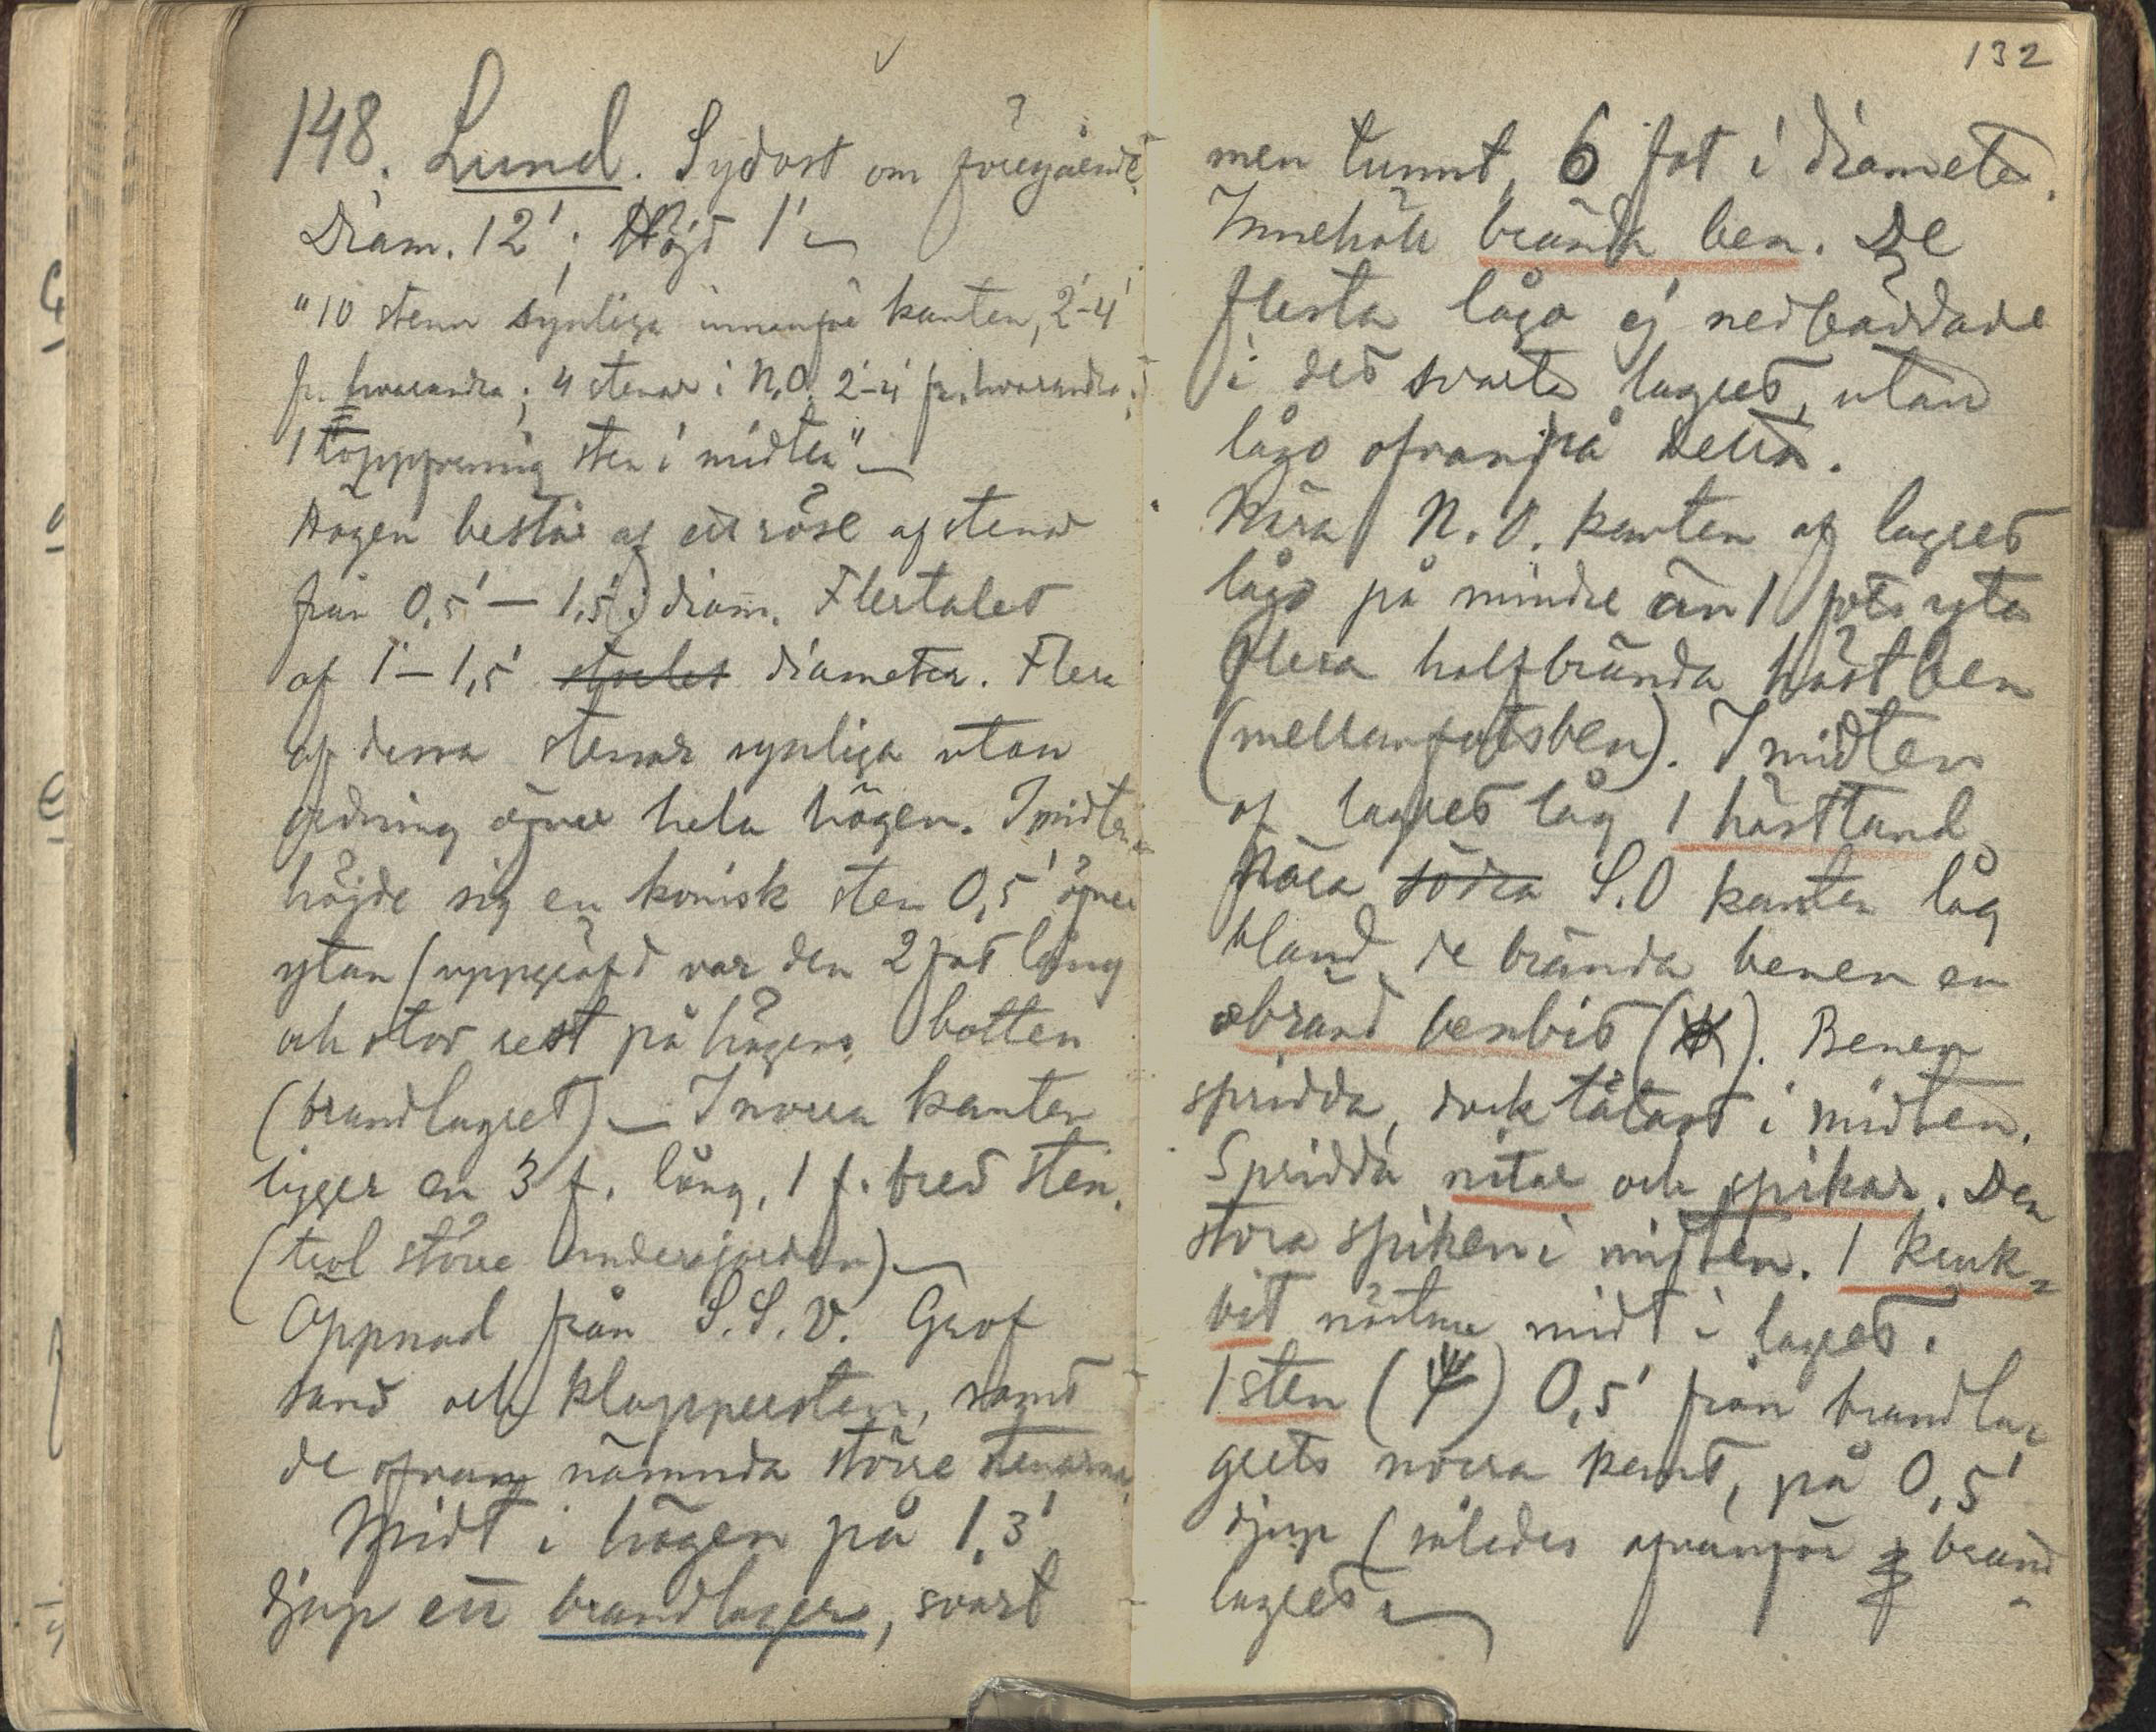 148. Lund. Sydost om föregående.
Diam. 12'; Höjd 1'
"10 stenar synliga innanför kanten, 2'-4'
fr. hvarandra; 4 stenar i N.O. 2'-4' fr. hvarandra;
1 toppformig sten i midten"
Högen består af ett röse af stenar
från 0,5' — 1,5' i diam. Flertalet
af 1' — 1,5' diameter. Flera
af dessa stenar synliga utan
ordning öfver hela högen. I midten
höjde sig en konisk sten 0,5' öfver
ytan (uppgräfd var den 2 fot lång
och stod rest på högens botten
(brandlagret) — I norra kanten
ligger en 3 f. lång, 1 f. bred sten.
(trol större under jorden)
Öppnad från S.S.V. Grof
sand och klappersten, samt
de ofvan nämnda större stenarna.
Midt i högen på 1,3'
djup ett brandlager, svart
132
men tunnt, 6 fot i diameter.
Innehöll brända ben. De
flesta lågo ej nedbäddade
i det svarta lagret, utan
lågo ofvanpå detta.
Nära N.O. kanten af lagret
lågo på mindre än 1 fots yta
flera halfbrända hästben
(mellanfotsben). I midten
af lagret låg 1 hästtand
Nära södra S.O kanten låg
bland de brända benen en
obränd benbit (). Benen
spridda, dock tätast i midten.
Spridda nitar och spikar. Den
stora spiken i midten. 1 kruk-
bit nästan midt i lagret.
1 sten () 0,5' från brandla-
grets norra kant, på 0,5'
djup (således ofvanför brand-
lagret.